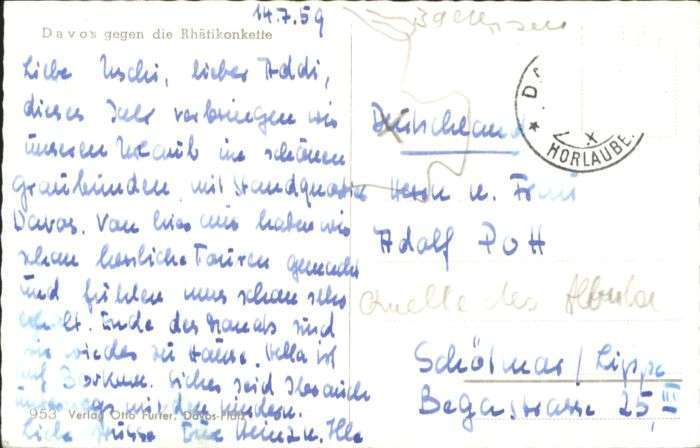 14.7.59
Davos gegen die Rhätikonkette
Liebe Uschi, lieber Addi,
dieses Jahr verbringen wir
unseren Urlaub im schönen
Graubünden, mit Standquartier
Davos. Von hier aus haben wir
schon herrliche Touren gemacht
und fühlen uns schon sehr
erholt. Ende des Monats sind
wir wieder zu Hause. Hella ist
auf Borkum. Sicher seid Ihr auch
unterwegs mit den Kindern.
Liebe Grüsse Eure Heinz u. Illa
953 Verlag Otto Furter, Davos-Platz
HORLAUBE
Deutschland
Herrn u. Frau
Adolf Pott
Quelle des Albula
Schötmar / Lippe
Begastrasse 25, III